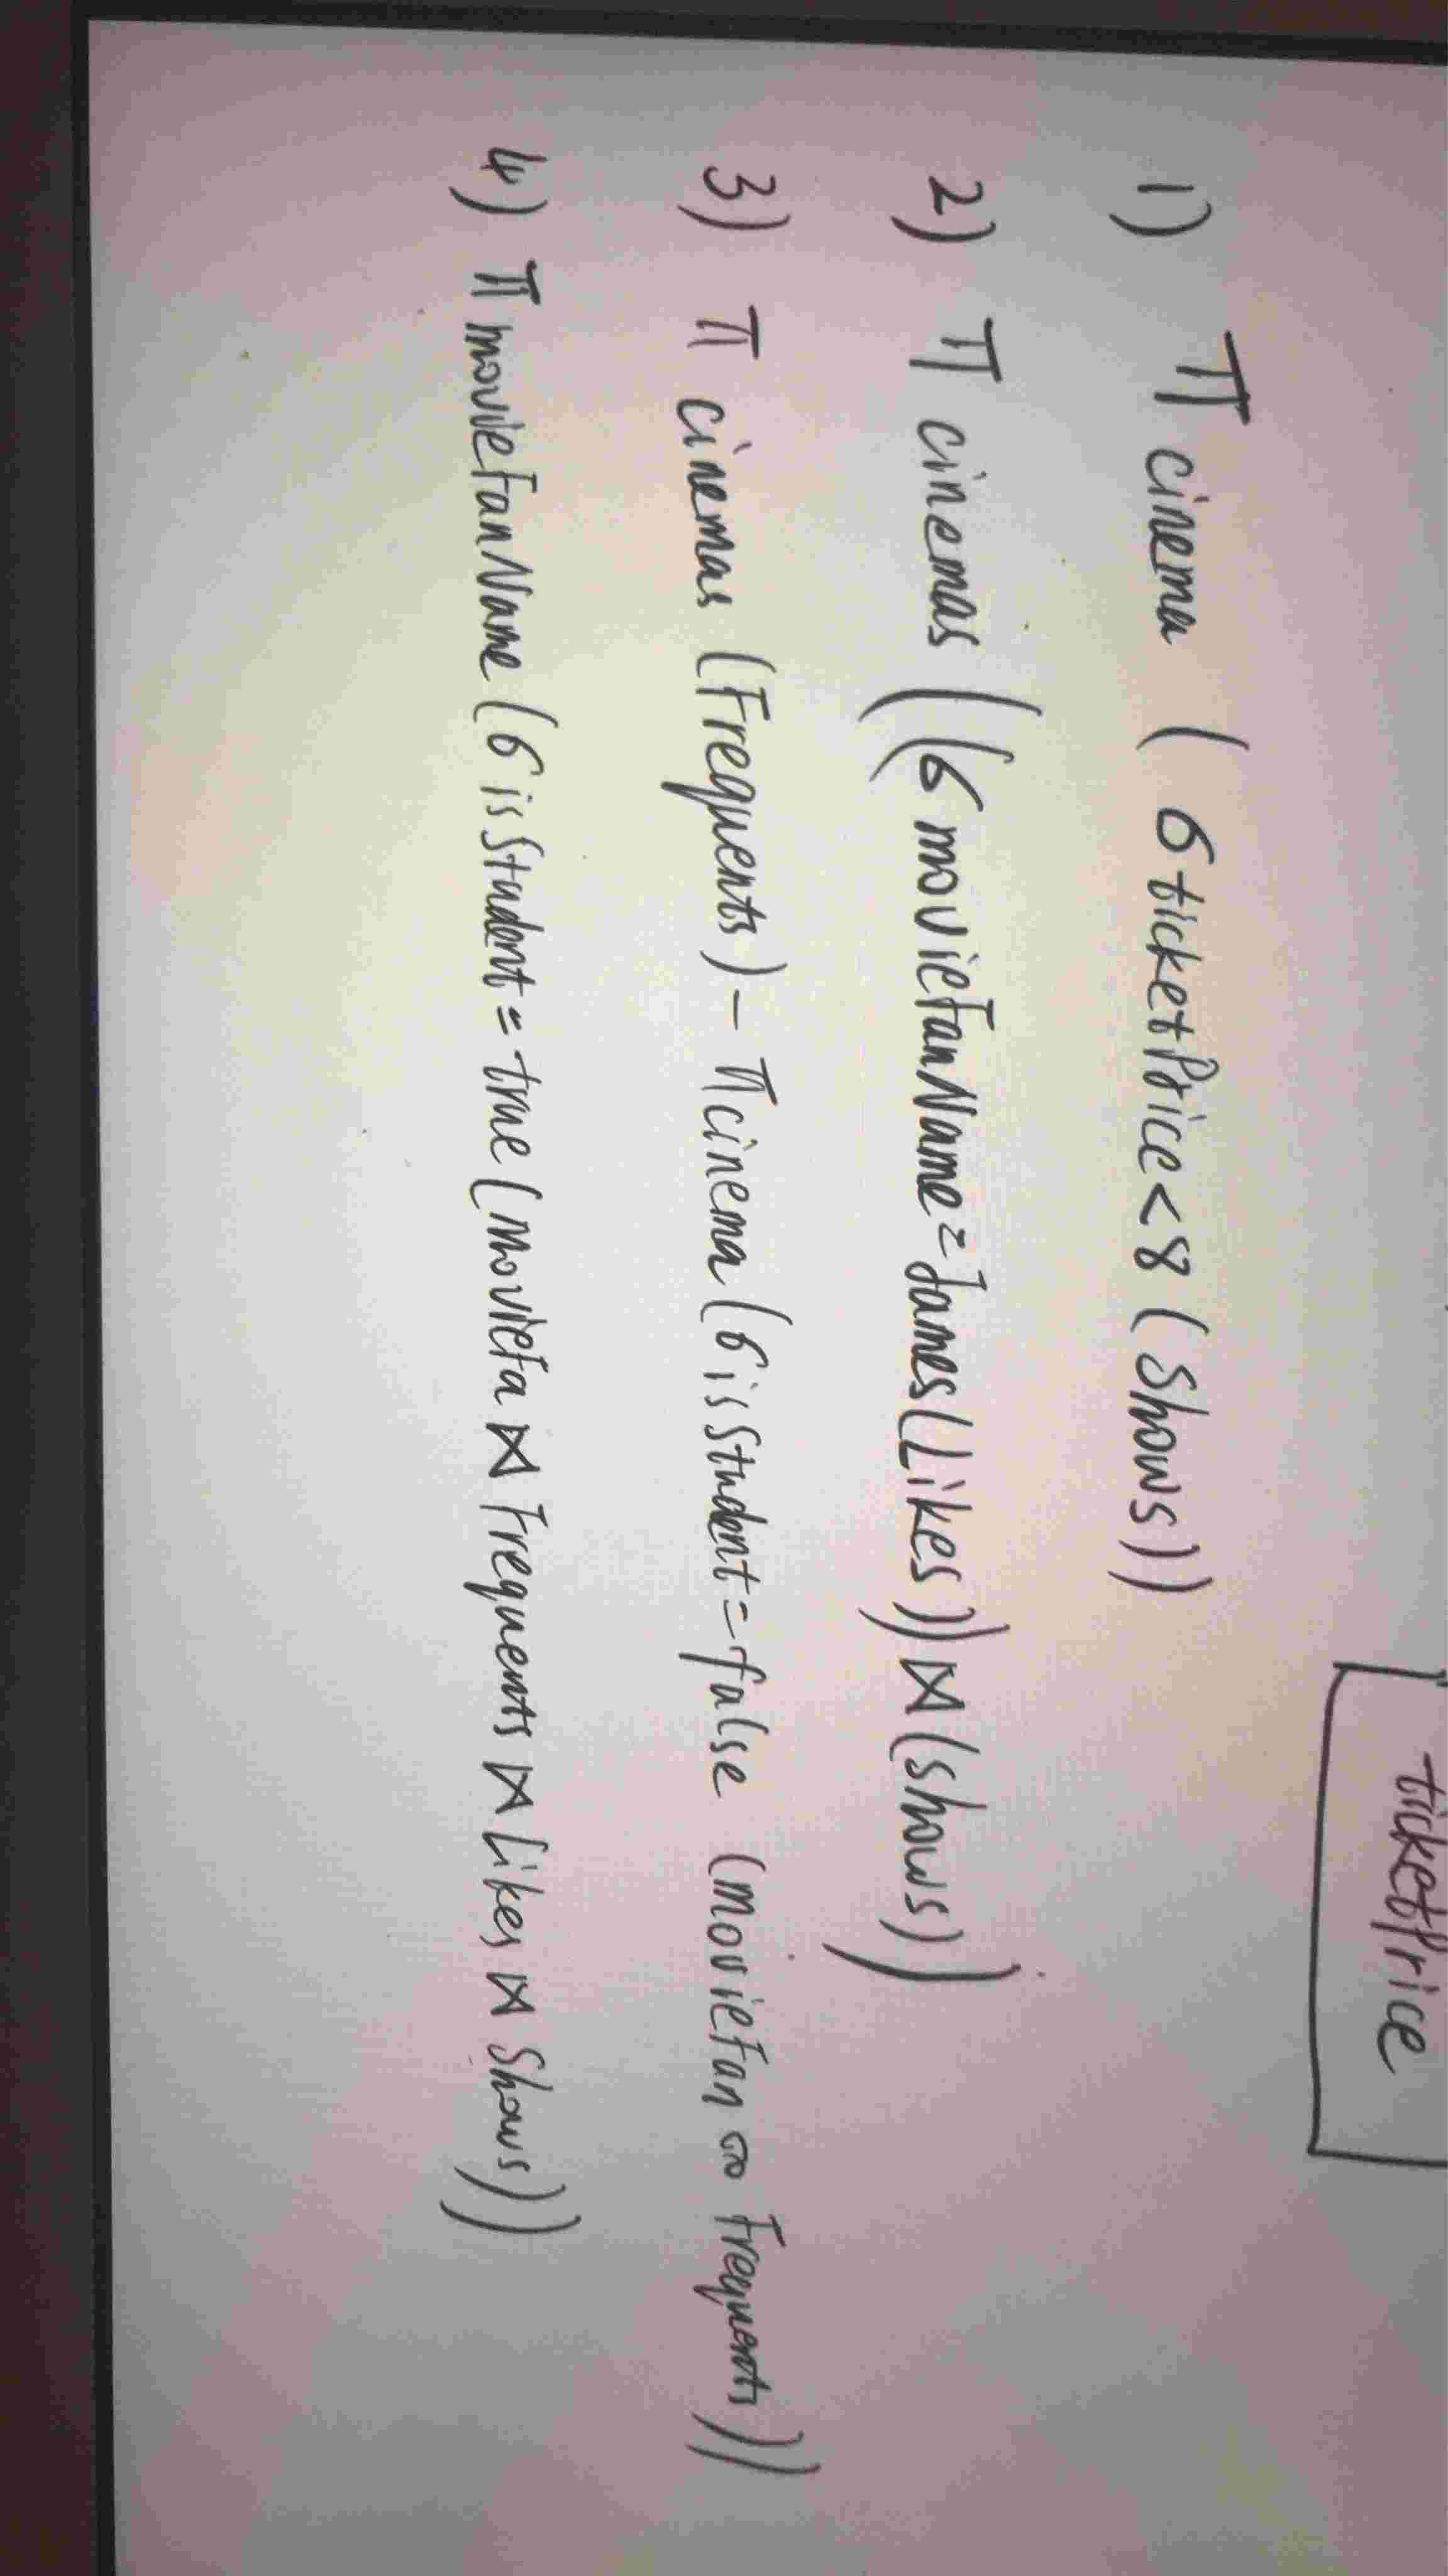 ticketPrice
1) π cinema ( σ ticketPrice<8 (Shows))
2) π cinemas ((σ movieFanName=James(Likes)) ⋈ (shows))
3) π cinemas (Frequents) − π cinema (σ isStudent=false (movieFan ∞ Frequents))
4) π movieFanName (σ isStudent = true (MovieFa ⋈ Frequents ⋈ Likes ⋈ Shows))